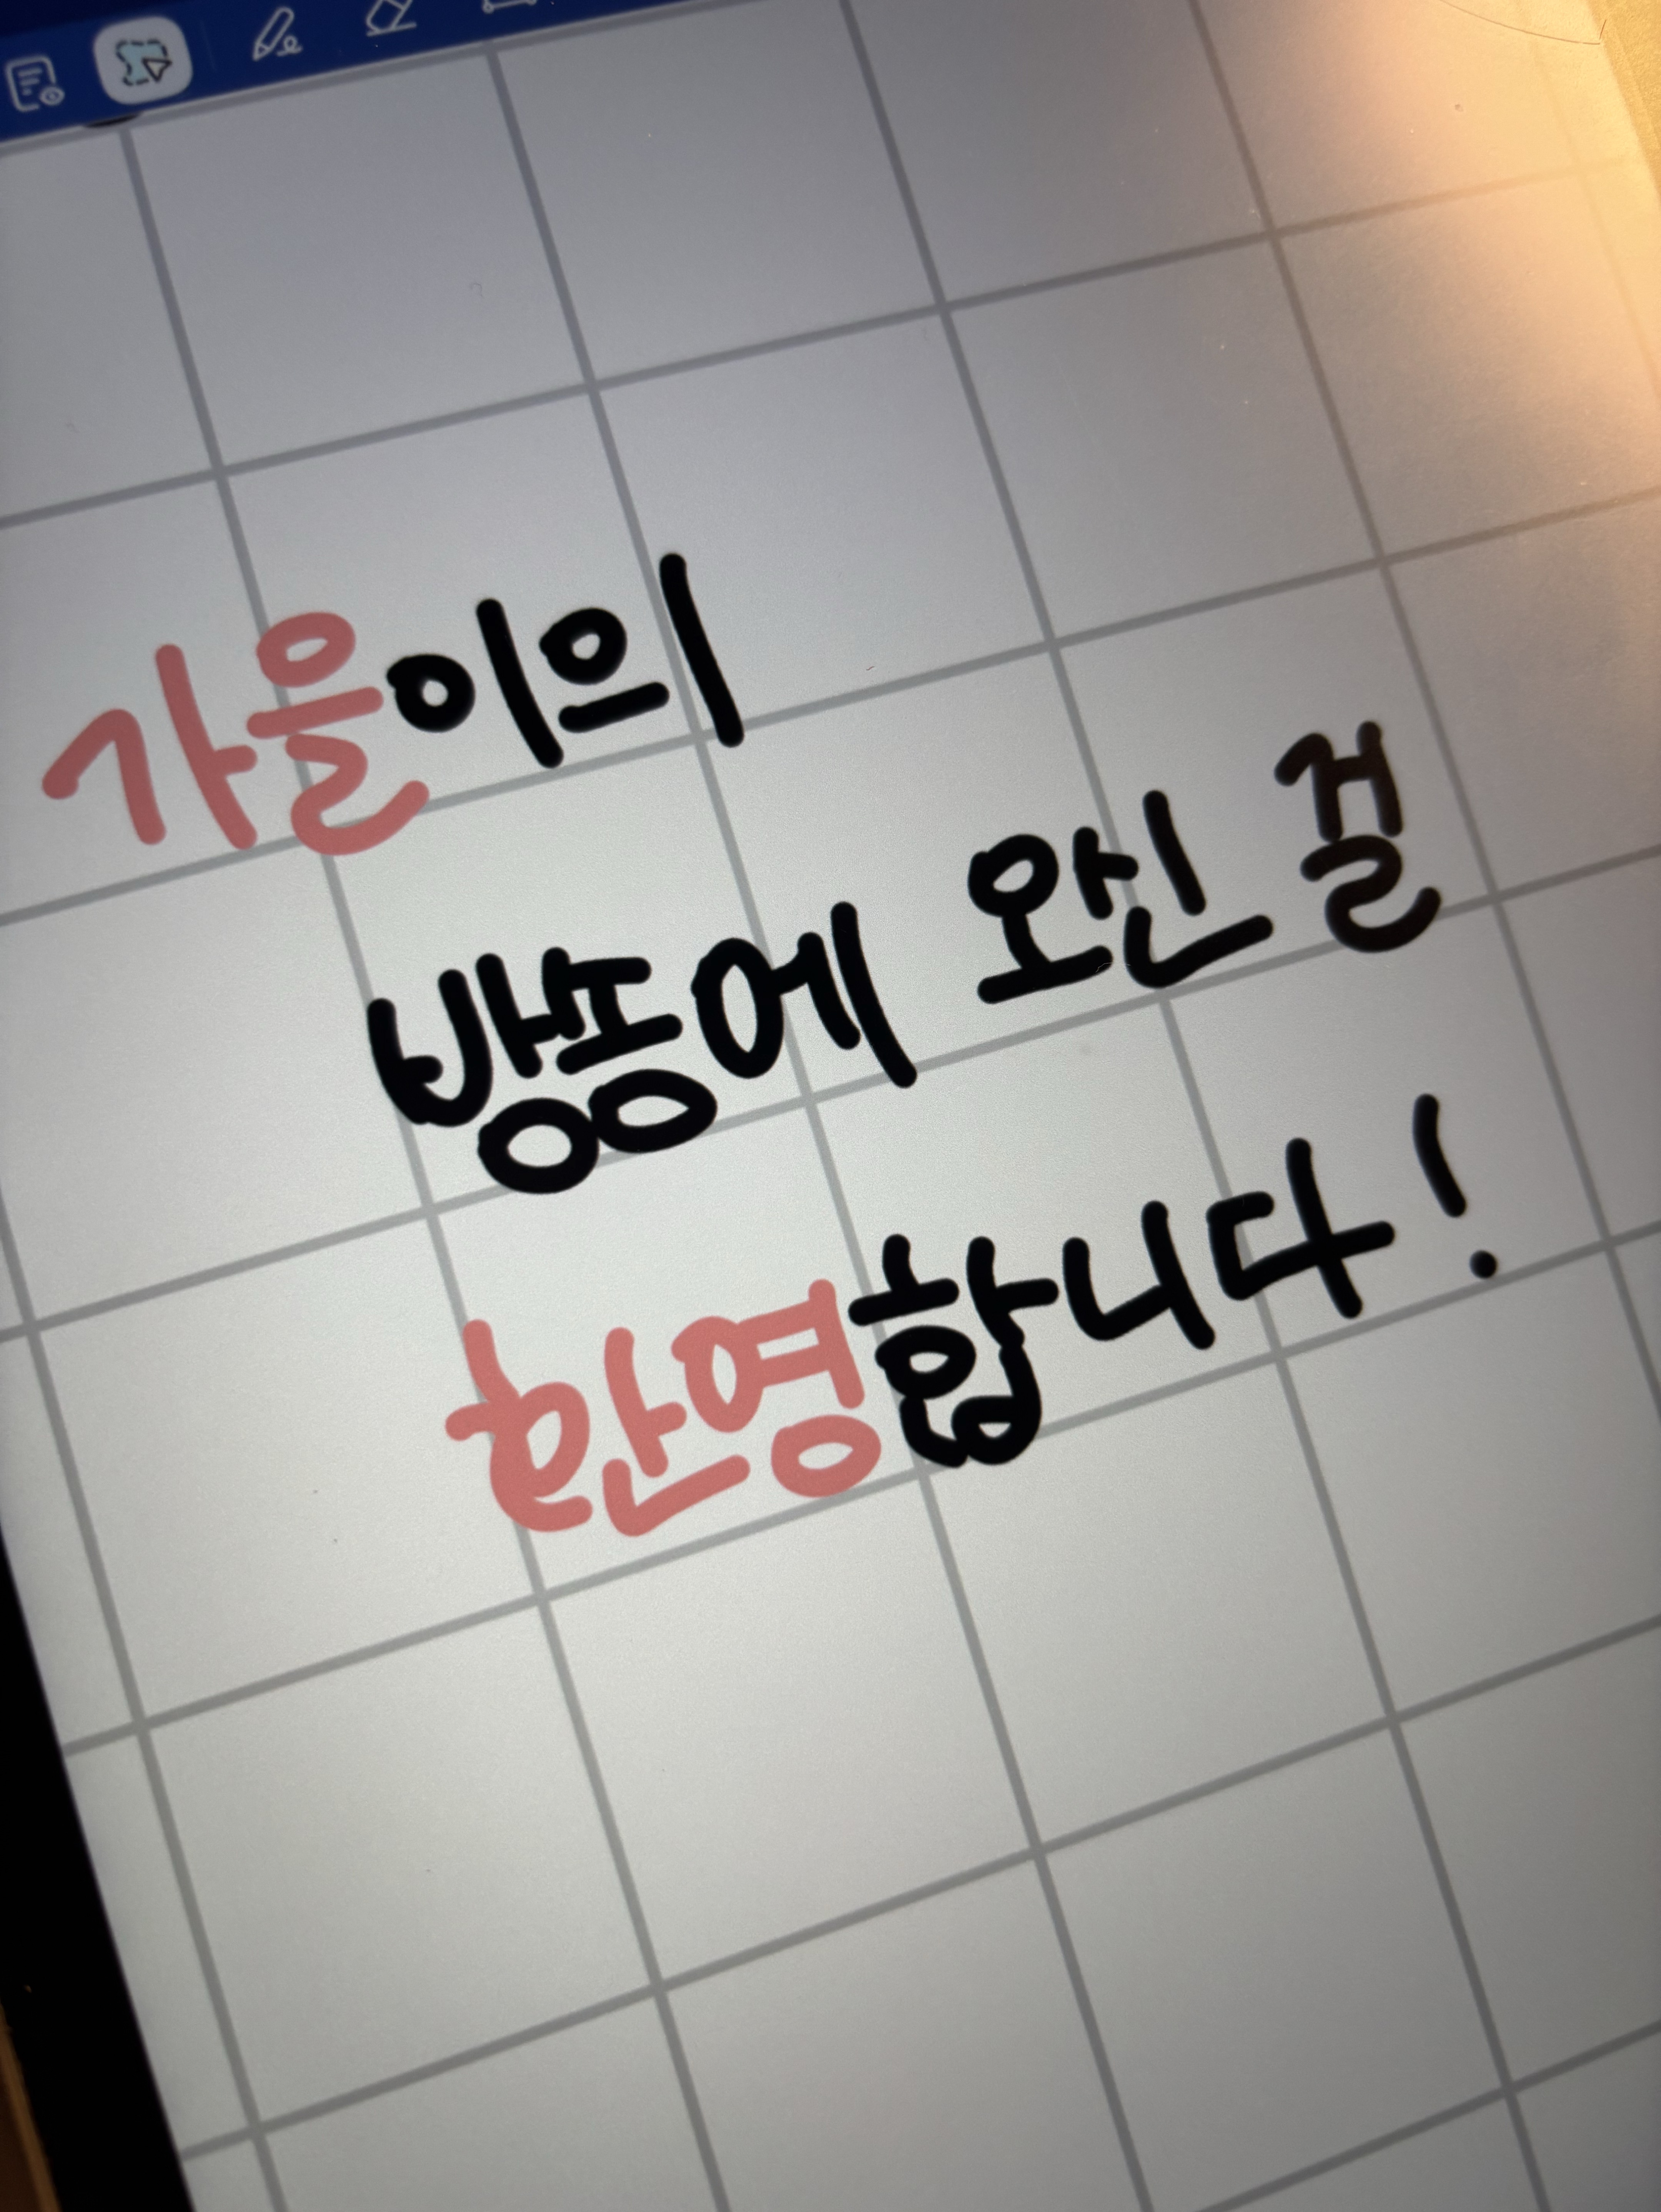 가을이의
방송에 오신 걸
환영합니다!